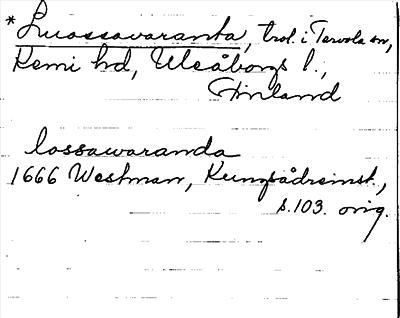 *Luossavaranta, trol. i Tervola sn,
Kemi hd, Uleåborgs l.,
Finland
lossawaranda
1666 Westman, Kungsådreinst.,
s. 103. orig.